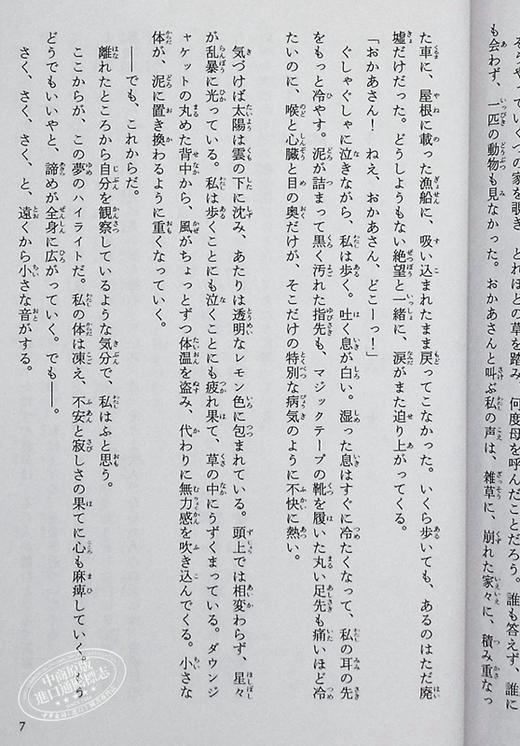 そうやっていくつの家を覗き、どれほどの草を踏み、何度母を呼んだことだろう。誰も答えず、誰に
も会わず、一匹の動物も見なかった。おかあさんと叫ぶ私の声は、雑草に、崩れた家々に、積み重なっ
た車に、屋根に載った漁船に、吸い込まれたまま戻ってこなかった。いくら歩いても、あるのはただ廃
墟だけだった。どうしようもない絶望と一緒に、涙がまた迫り上がってくる。
「おかあさん！　ねえ、おかあさん、どこーっ！」
ぐしゃぐしゃに泣きながら、私は歩く。吐く息が白い。湿った息はすぐに冷たくなって、私の耳の先
をもっと冷やす。泥が詰まって黒く汚れた指先も、マジックテープの靴を履いた丸い足先も痛いほど冷
たいのに、喉と心臓と目の奥だけが、そこだけの特別な病気のように不快に熱い。
気づけば太陽は雲の下に沈み、あたりは透明なレモン色に包まれている。頭上では相変わらず、星々
が乱暴に光っている。私は歩くことにも泣くことにも疲れ果て、草の中にうずくまっている。ダウンジ
ャケットの丸めた背中から、風がちょっとずつ体温を盗み、代わりに無力感を吹き込んでくる。小さな
体が、泥に置き換わるように重くなっていく。
――でも、これからだ。
離れたところから自分を観察しているような気分で、私はふと思う。
ここからが、この夢のハイライトだ。私の体は凍え、不安と寂しさの果てに心も麻痺していく。もう
どうでもいいやと、諦めが全身に広がっていく。でも――。
さく、さく、さく、と、遠くから小さな音がする。
7